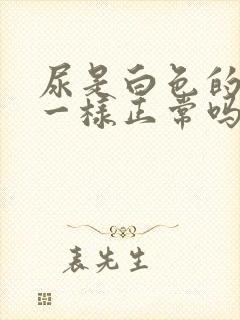 尿是白色的
一様正常吗
表先生